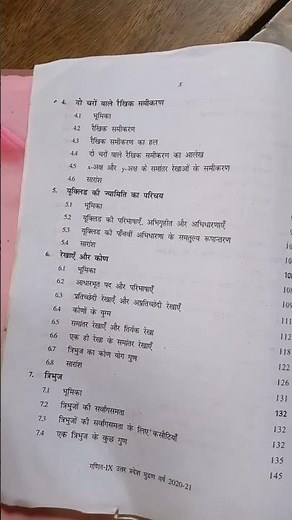 5
4. दो चरों वाले रैखिक समीकरण
4.1 भूमिका
4.2 रैखिक समीकरण
4.3 रैखिक समीकरण का हल
4.4 दो चरों वाले रैखिक समीकरण का आलेख
4.5 x-अक्ष और y-अक्ष के समांतर रेखाओं के समीकरण
4.6 सारांश
5. यूक्लिड की ज्यामिति का परिचय
5.1 भूमिका
5.2 यूक्लिड की परिभाषाएँ, अभिगृहीत और अभिधारणाएँ
5.3 यूक्लिड की पाँचवीं अभिधारणा के समतुल्य रूपान्तरण
5.4 सारांश
6. रेखाएँ और कोण
6.1 भूमिका
6.2 आधारभूत पद और परिभाषाएँ
6.3 प्रतिच्छेदी रेखाएँ और अप्रतिच्छेदी रेखाएँ
6.4 कोणों के युग्म
6.5 समांतर रेखाएँ और तिर्यक रेखा 111
6.6 एक ही रेखा के समांतर रेखाएँ 118
6.7 त्रिभुज का कोण योग गुण 122
6.8 सारांश 126
7. त्रिभुज 131
7.1 भूमिका 132
7.2 त्रिभुजों की सर्वांगसमता 132
7.3 त्रिभुजों की सर्वांगसमता के लिए कसौटियाँ 132
7.4 एक त्रिभुज के कुछ गुण 135
145
गणित-IX उत्तर प्रदेश मुद्रण वर्ष 2020-21